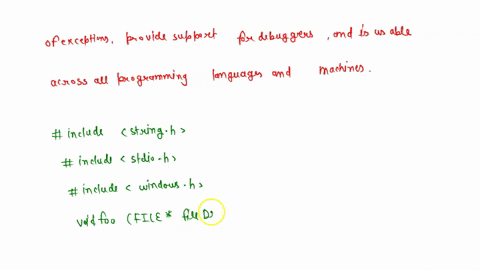 of exceptions, provide support for debuggers, and is us able
across all programming languages and machines.
# include <string.h>
# include <stdio.h>
# include < windows.h>
void foo (FILE * file De